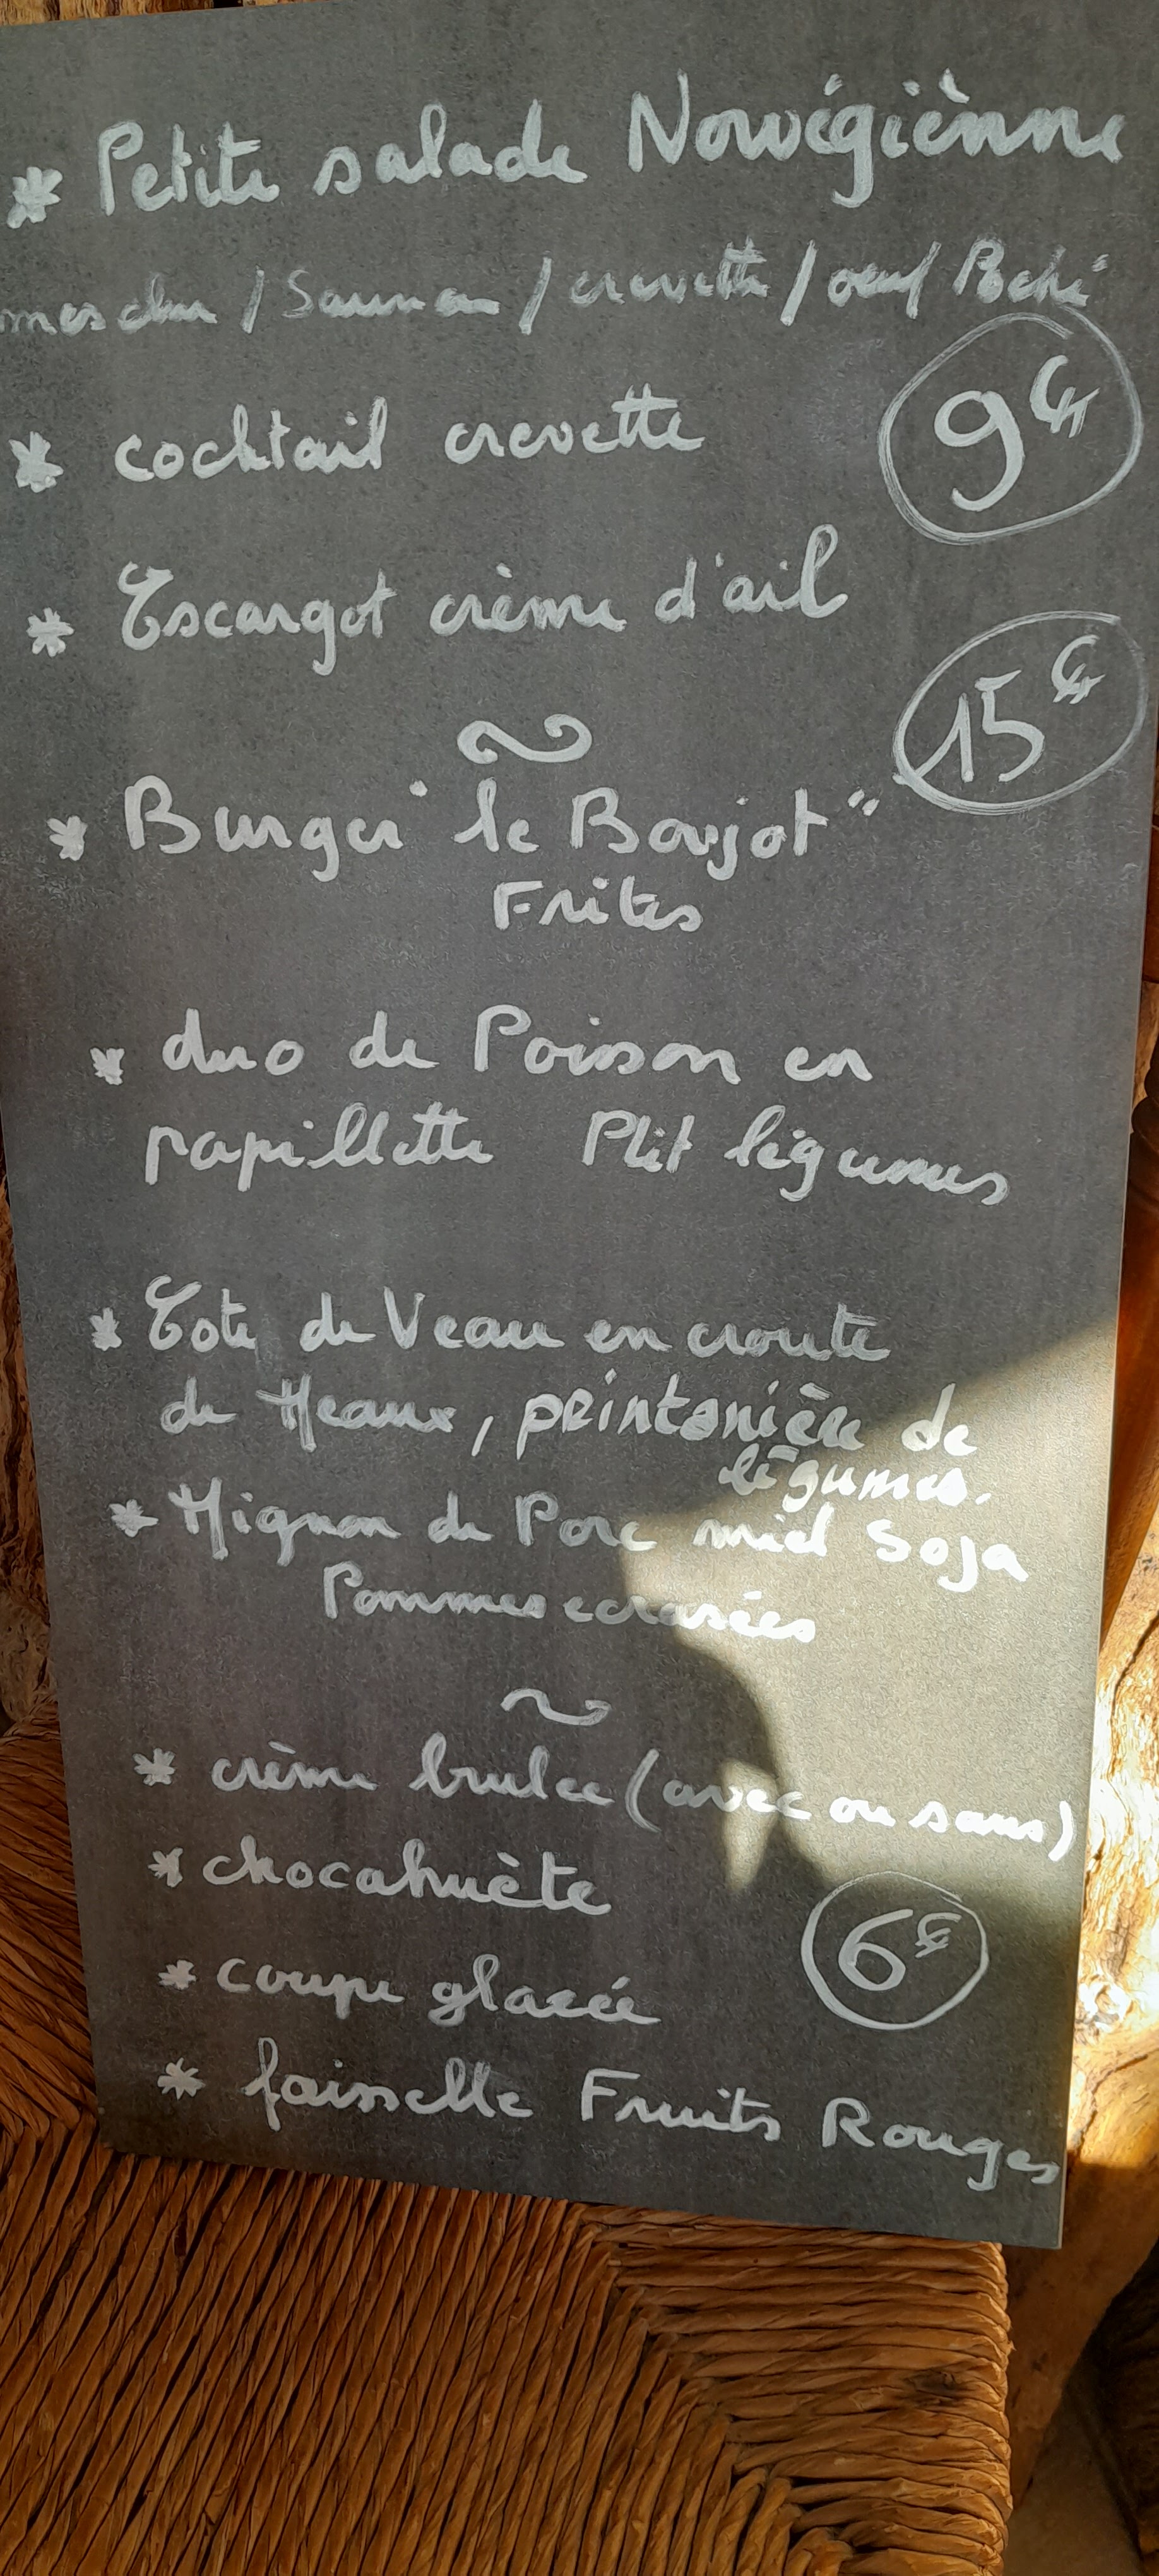 * Petite salade Norvégiènne
mesclun / Saumon / crevette / oeuf Poché
* cocktail crevette
9€
* Escargot crème d'ail
15€
* Burger "le Boujot"
Frites
* duo de Poisson en
papillette Ptit légumes
* Cote de Veau en croute
de Meaux, printanière de
légumes.
* Mignon de Porc miel Soja
Pommes ecrasées
* crème brulee (avec ou sans)
* chocahuète
6€
* coupe glacée
* faisselle Fruits Rouges